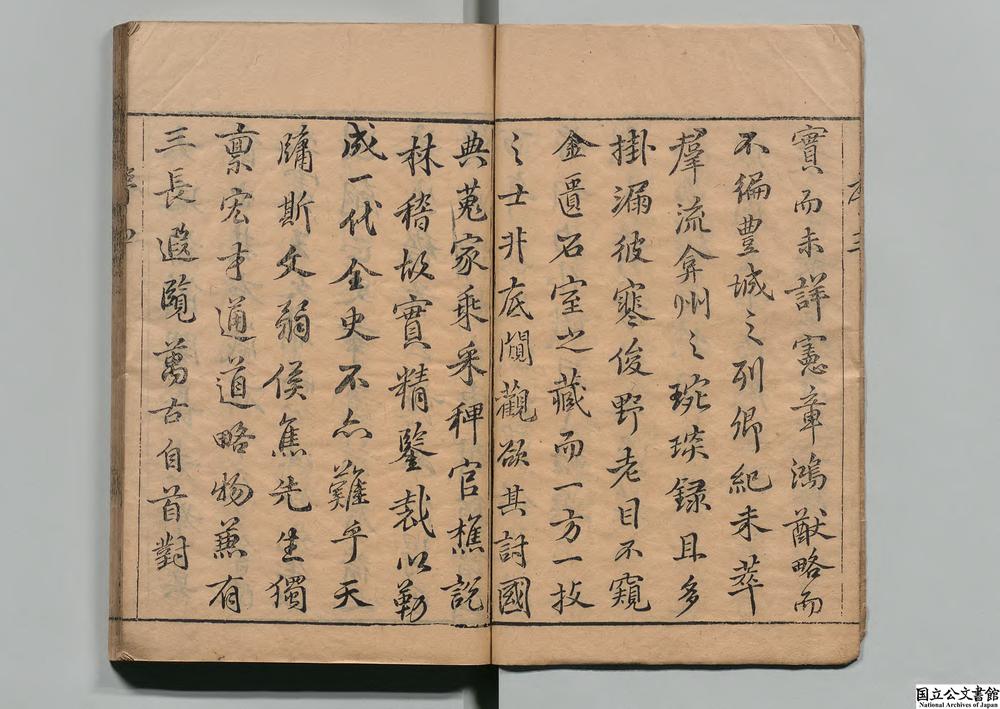 實而未詳憲章鴻猷略而
不徧豐城之列卿紀未萃
羣流弇州之琬琰録且多
掛漏彼寒俊野老目不窺
金匱石室之藏而一方一技
之士非底闚觀欲其討國
典蒐家乘采稗官樵說
林稽故實精鑒裁以勒
成一代全史不亦難乎天
牖斯文弱侯焦先生獨
禀宏才通道略物兼有
三長遐覽萬古自首對
序三
國立公文書館
National Archives of Japan